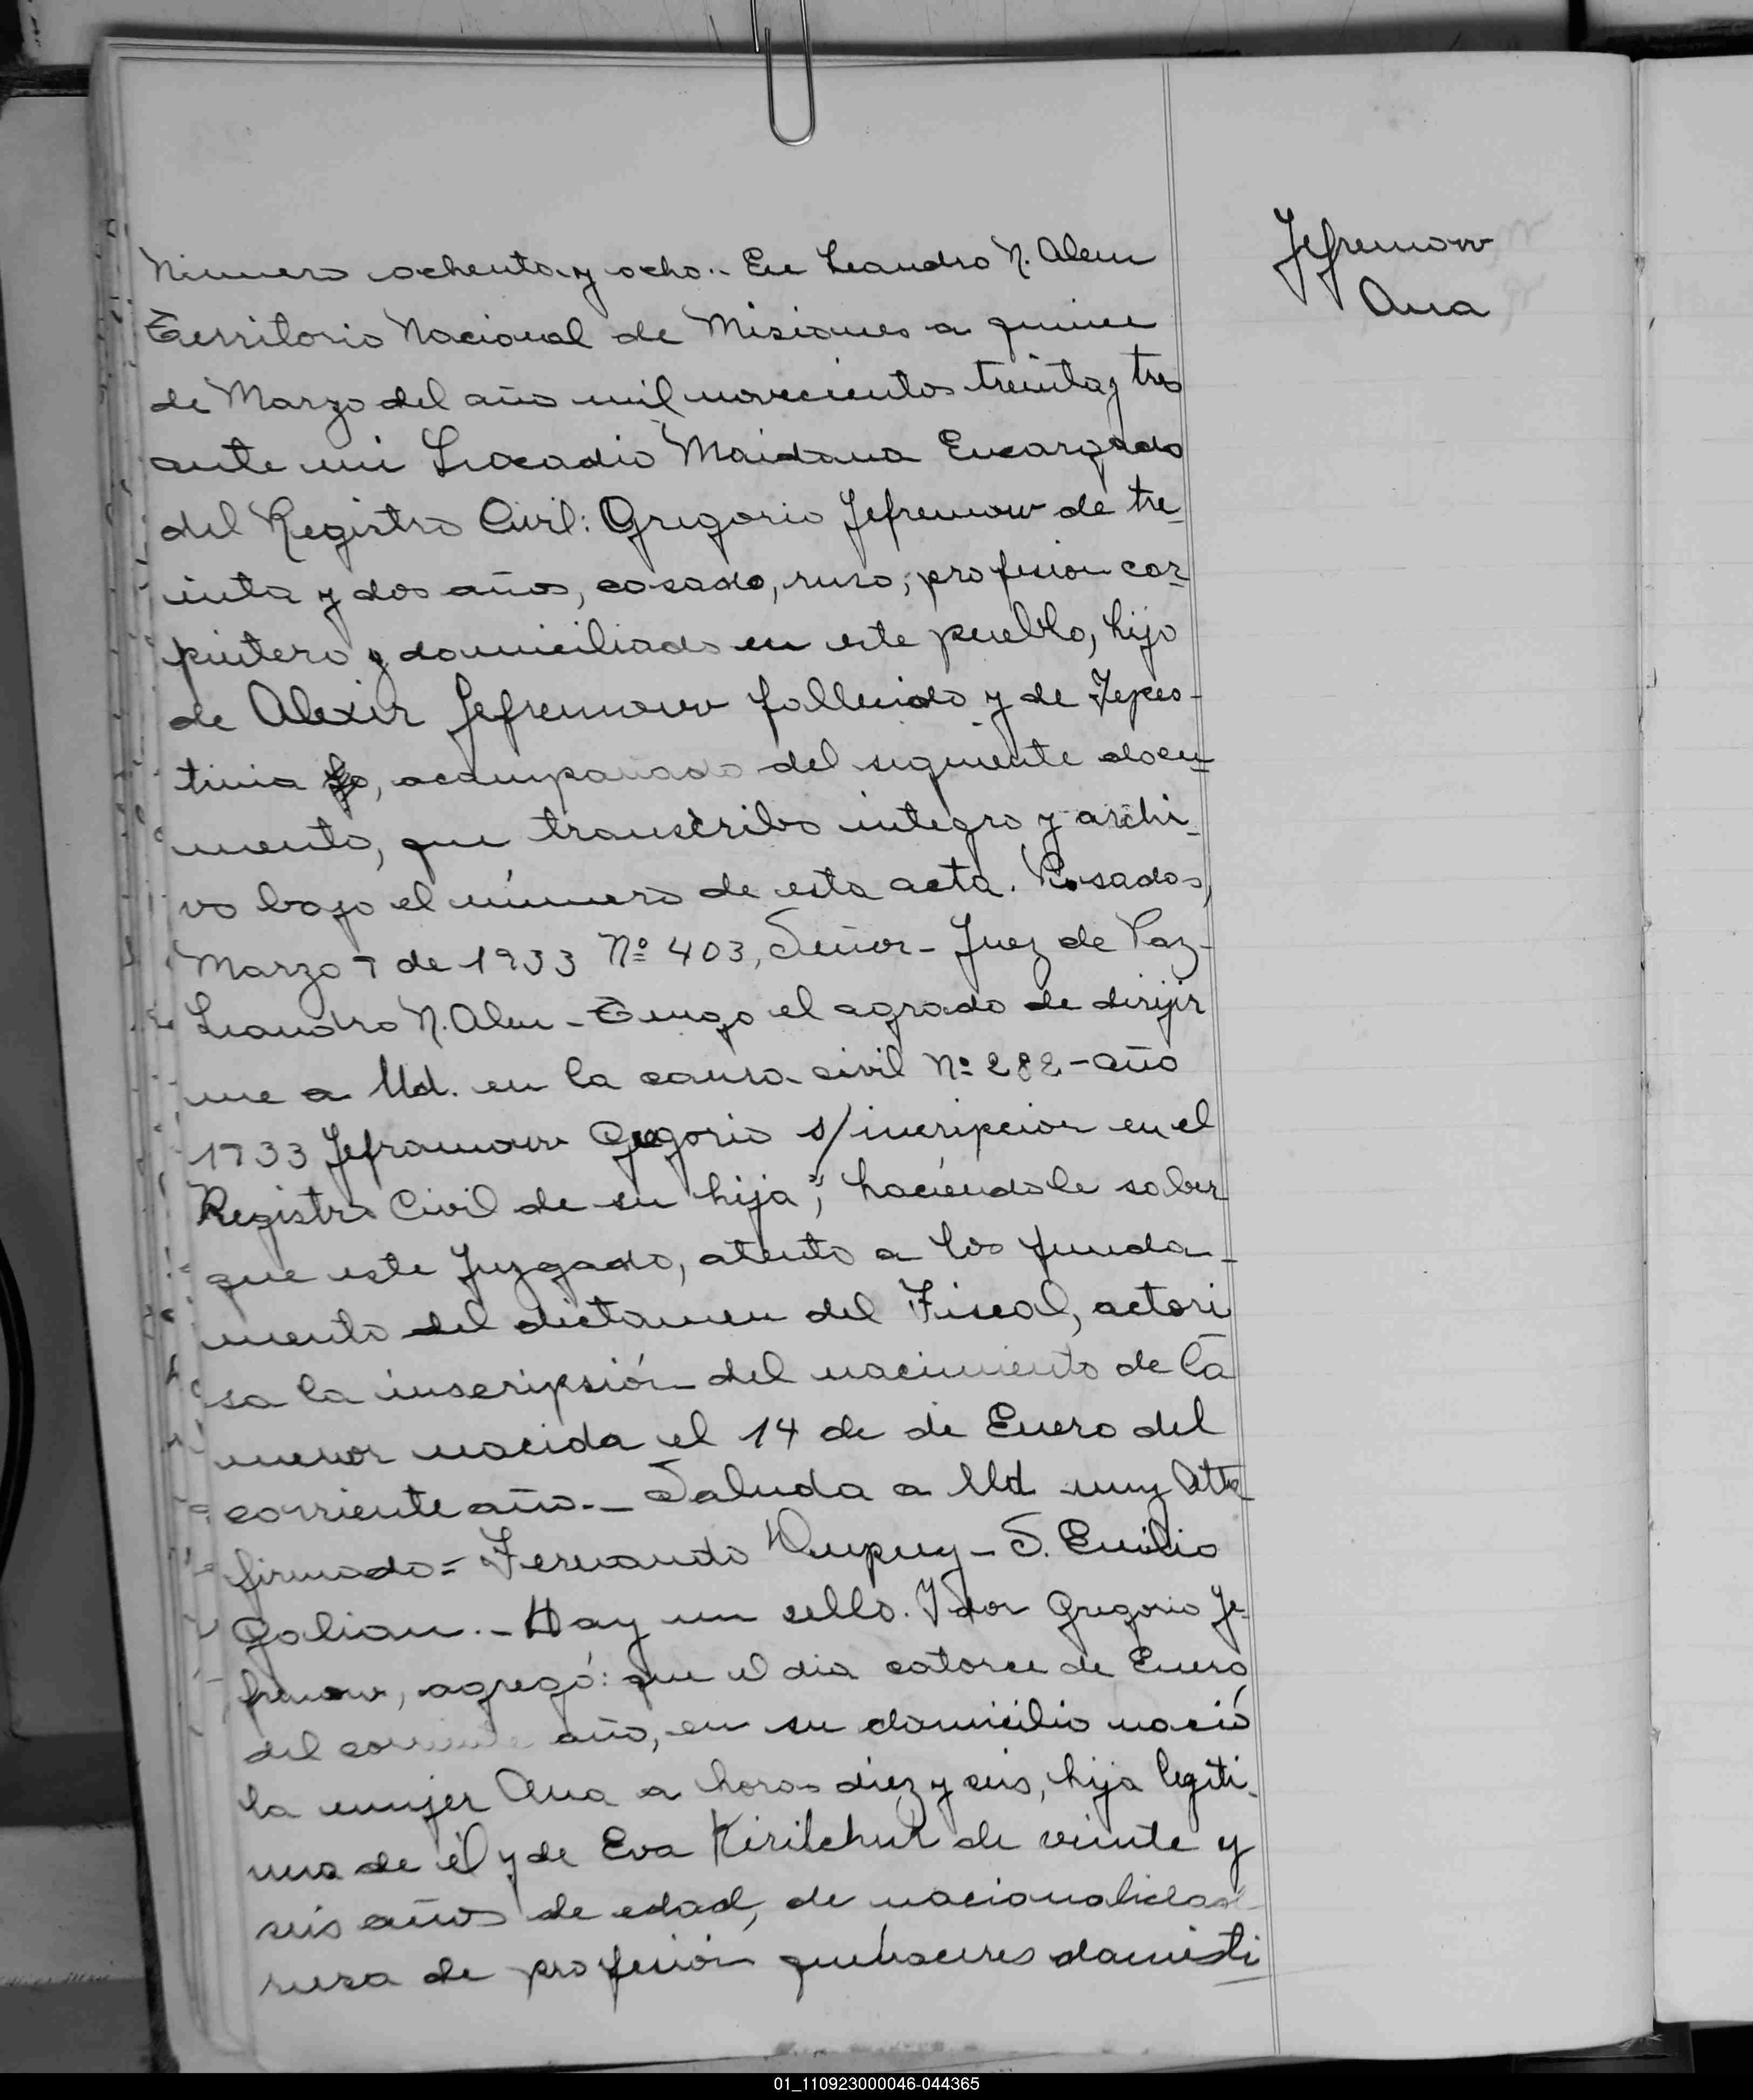 Jefremow
Ana
Número ochenta y ocho.- En Leandro N. Alem
Territorio Nacional de Misiones a quince
de Marzo del año mil novecientos treinta y tres
ante mi Leocadio Maidana Encargado
del Registro Civil: Gregorio Jefremow de tre-
inta y dos años, casado, ruso, profesion car-
pintero y domiciliado en este pueblo, hijo
de Alexir Jefremow fallecido y de
acompañado del siguiente docu-
mento, que transcribo integro y archi-
vo bajo el número de esta acta. Posadas,
Marzo 7 de 1933 Nº 403, Señor- Juez de Paz-
Leandro N. Alem - Tengo el agrado de dirijir
me a Ud. en la causa civil Nº 282 - año
1933 Jeframow Gregorio s/ incripcion en el
Registro Civil de su hija", haciéndole saber
que este Juzgado, atento a los funda-
mento del dictamen del Fiscal, actori
sa la inscripsión del nacimiento de la
menor nacida el 14 de de Enero del
corriente año.- Saluda a Ud muy Atte
firmado = Fernando Dupuy - S. Emilio
Galian.- Hay un sello. Y don Gregorio Je-
fremow, agregó: que el dia catorce de Enero
del corriente año, en su domicilio nació
la mujer Ana a horas diez y seis, hija legiti-
ma de él y de Eva Kirilchuk de veinte y
seis años de edad, de nacionalidad
rusa de profesión quehaceres domesti
01_110923000046-044365